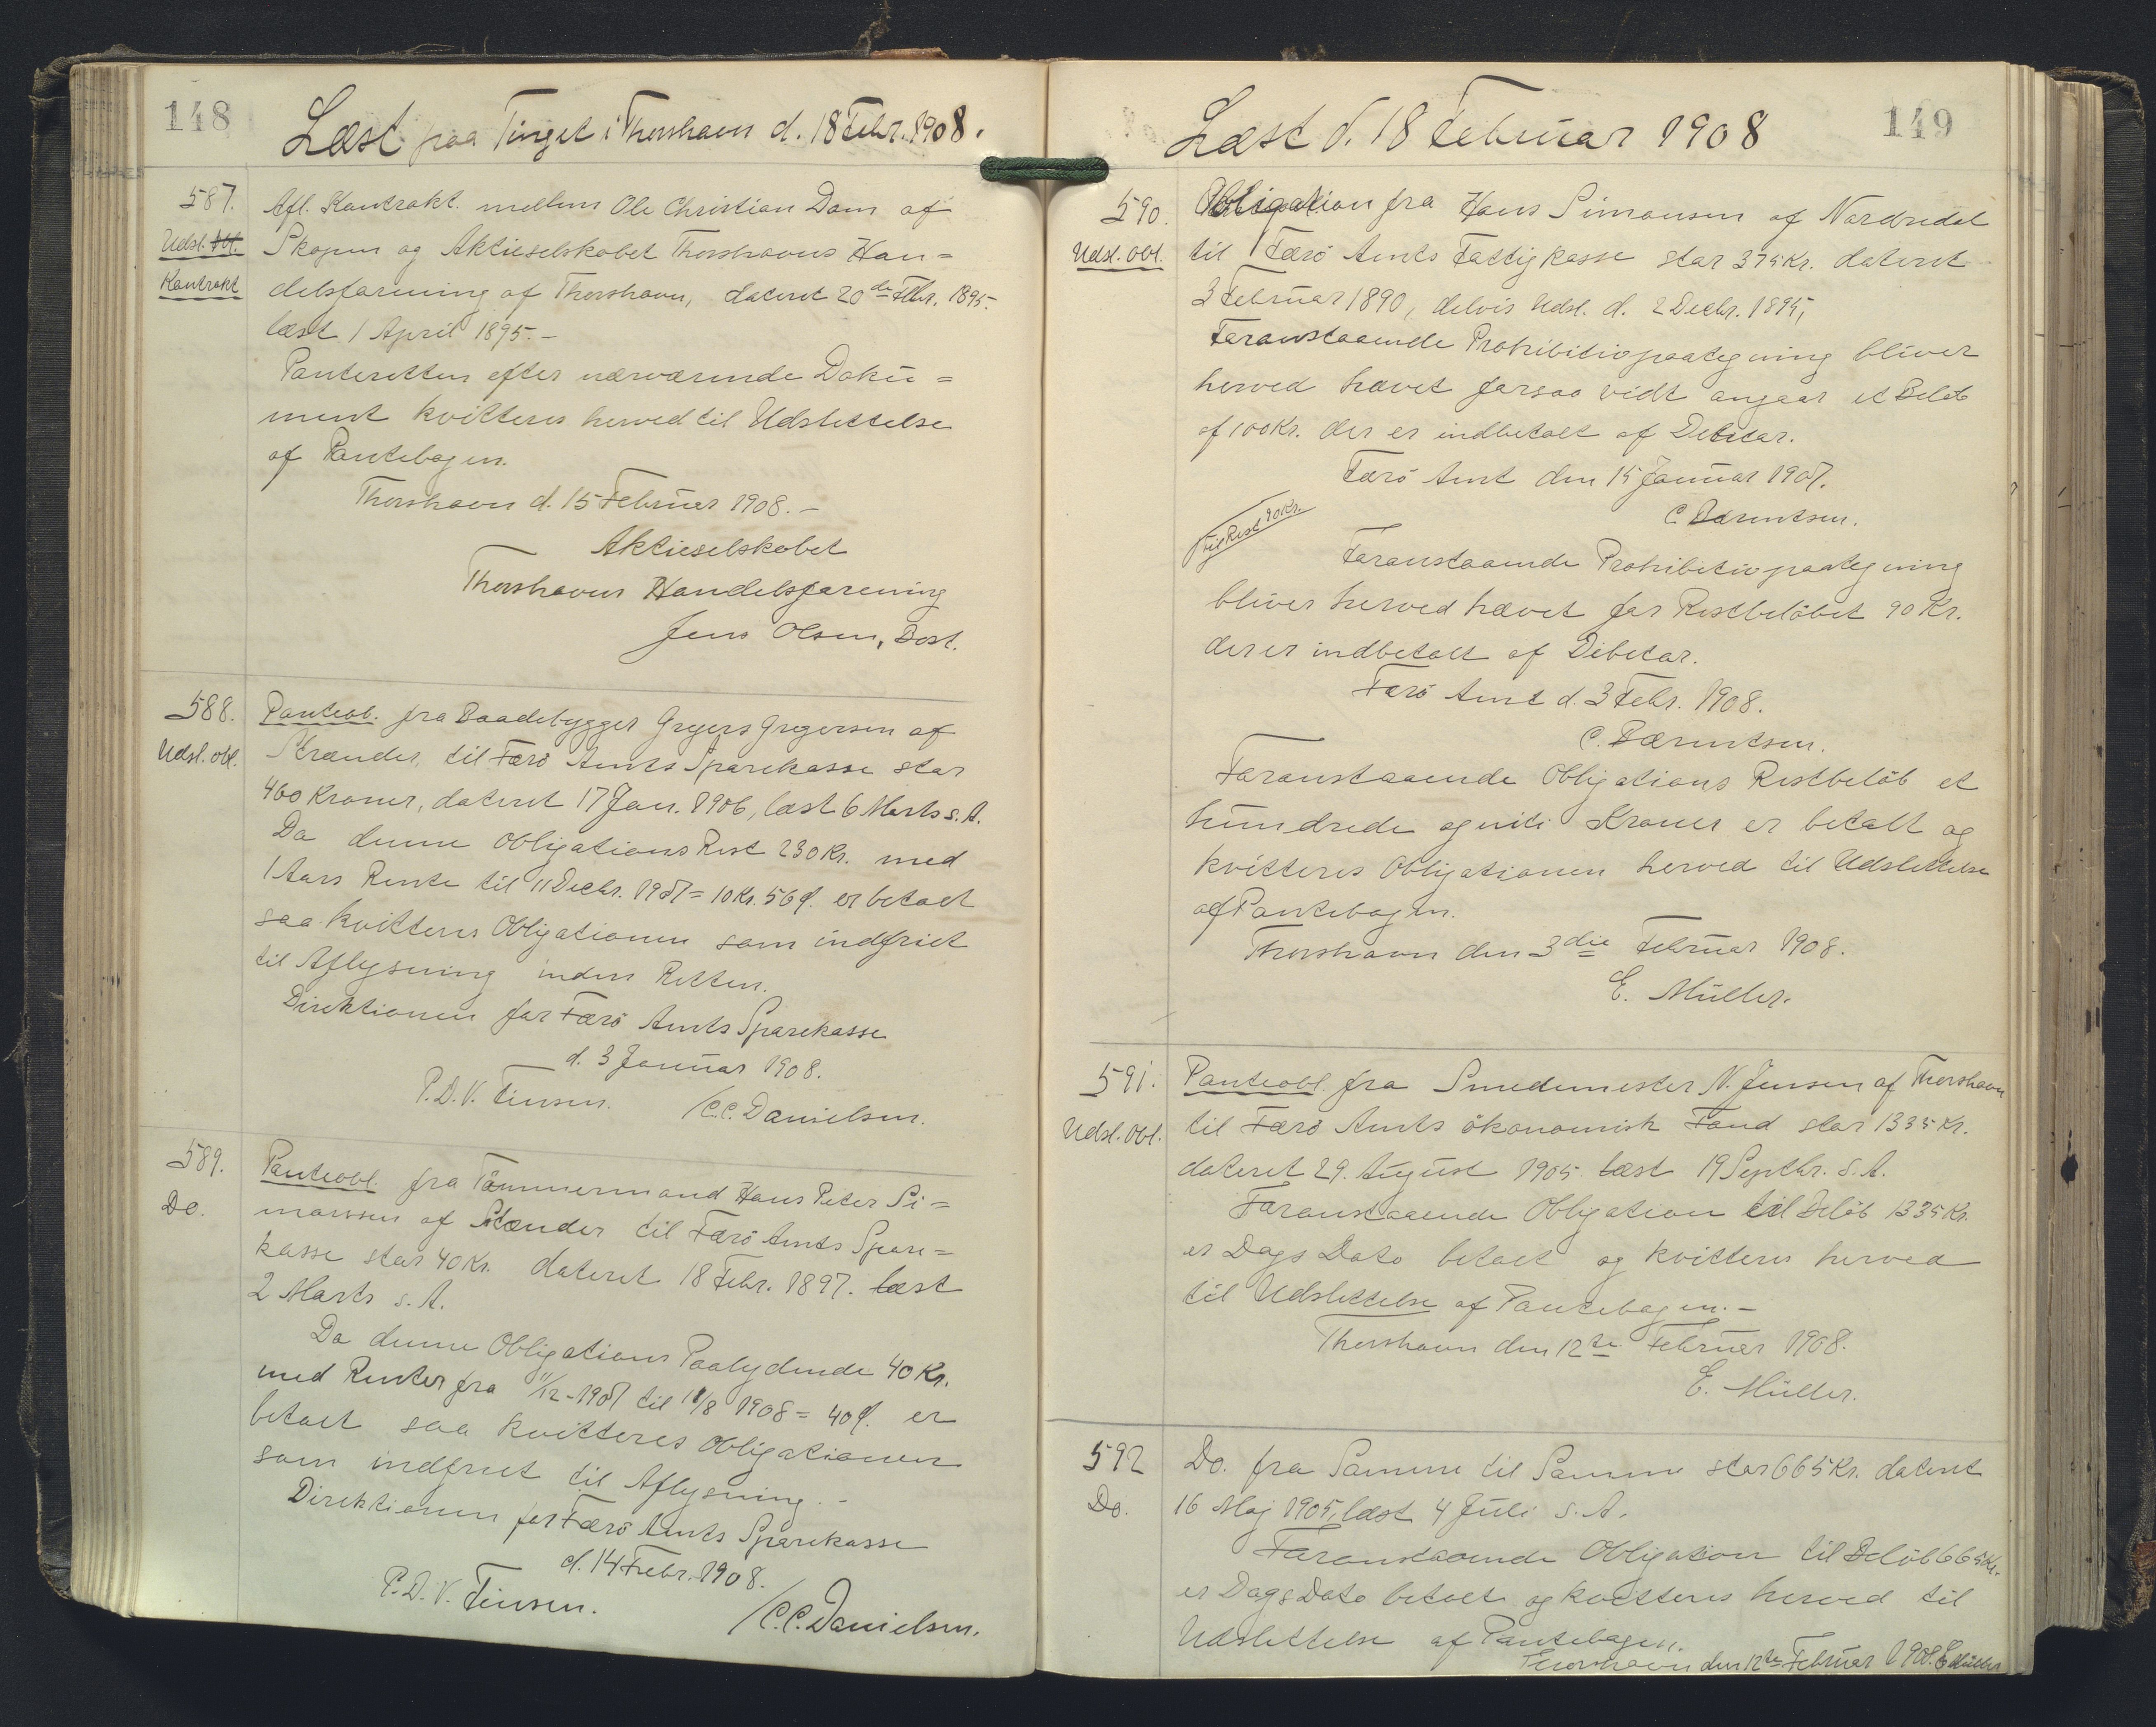 148
Læst paa Tinget i Thorshavn d. 18 Febr. 1908.
587.
Udsl. Obl.
Kontrakt
Afl. Kontrakt. mellem Ole Christian Dam af
Skopen og Aktieselskabet Thorshavns Han=
delsforening af Thorshavn, dateret 20de Febr. 1895.
læst 1 April 1895.-
Panteretten efter nærværende Doku=
ment kvitteres herved til Udslettelse
af Pantebogen.
Thorshavn d. 15 Februar 1908.-
Aktieselskabet
Thorshavns Handelsforening
Jens Olsen, Best.
588.
Udsl. obl.
Panteobl. fra Baadebygger Gregers Gregersen af
Strænder, til Færö Amts Sparekasse stor
460 Kroner, dateret 17 Jan. 1906, læst 6 Marts s. A.
Da denne Obligations Rest 230 Kr. med
1 Aars Rente til 11 Decbr. 1907 = 10 Kr. 56 Ø. er betalt
saa kvitteres Obligationen som indfriet
til Aflysning inden Retten.
Direktionen for Færö Amts Sparekasse
d. 3 Januar 1908.
P. D. V. Finsen. /C.C. Danielsen.
589.
Do.
Panteobl. fra Tömmermand Hans Peter Si=
monsen af Strænder til Færö Amts Spare=
kasse stor 40 Kr. dateret 18 Febr. 1897. læst
2 Marts s. A.
Da denne Obligations Paalydende 40 Kr.
med Renter fra 11/12-1907 til 11/3 1908 = 40 Ø. er
betalt saa kvitteres Obligationen
som indfriet til Aflysning.-
Direktionen for Færö Amts Sparekasse
d. 14 Febr. 1908.
P. D. V. Finsen. /C.C. Danielsen.
Læst d. 18 Februar 1908
149
590.
Udsl. Obl.
Obligation fra Hans Simonsen af Nordredal
til Færö Amts Fattigkasse stor 375 Kr. dateret
3 Februar 1890, delvis Udsl. d. 2 Decbr. 1895,
Foranstaaende Prohibitivpaategning bliver
herved hævet forsaa vidt angaar et Belöb
af 100 Kr. der er indbetalt af Debitor.
Færö Amt den 15 Januar 1907.
C. Bærentsen.
til Rest 90 Kr.
Foranstaaende Prohibitivpaategning
bliver herved hævet for Restbelöbet 90 Kr.
der er indbetalt af Debitor.
Færö Amt d. 3 Febr. 1908.
C. Bærentsen.
Foranstaaende Obligations Restbelöb et
hundrede og niti Kroner er betalt og
kvitteres Obligationen herved til Udslettelse
af Pantebogen.
Thorshavn den 3die Februar 1908.
E. Müller.
591.
Udsl. Obl.
Panteobl. fra Smedemester N. Jensen af Thorshavn
til Færö Amts ökonomisk Fond stor 1335 Kr.
dateret 29. August 1905. læst 19 Septbr. S. A.
Foranstaaende Obligation til Belöb 1335 Kr.
er Dags Dato betalt og kvitteres herved
til Udslettelse af Pantebogen.-
Thorshavn den 12te Februar 1908.
E. Müller.
592
Do.
Do. fra Samme til Samme stor 665 Kr. dateret
16 Maj 1905, læst 4 Juli S. A.
Foranstaaende Obligation til Belöb 665 Kr.
er Dags Dato betalt og kvitteres herved til
Udslettelse af Pantebogen.
Thorshavn den 12te Februar 1908. E. Müller